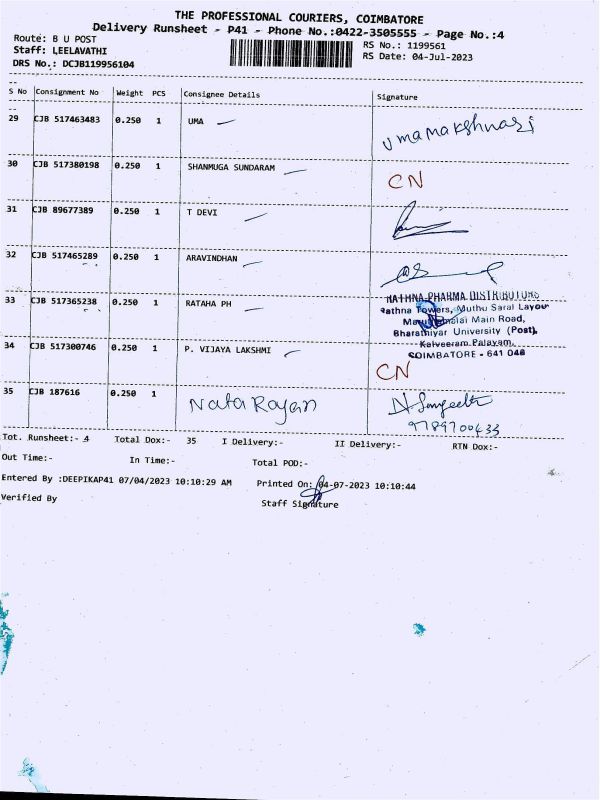 THE PROFESSIONAL COURIERS, COIMBATORE
Delivery Runsheet - P41 - Phone No.:0422-3505555 - Page No.:4
Route: B U POST
RS No.: 1199561
Staff: LEELAVATHI
RS Date: 04-Jul-2023
DRS No.: DCJB119956104
S No Consignment No Weight PCS Consignee Details Signature
29 CJB 517463483 0.250 1 UMA
30 CJB 517380198 0.250 1 SHANMUGA SUNDARAM CN
31 CJB 89677389 0.250 1 T DEVI
32 CJB 517465289 0.250 1 ARAVINDHAN
33 CJB 517365238 0.250 1 RATAHA PH
RATHNA PHARMA DISTRIBUTORS
Rathna Towers, Muthu Saral Layour
Main Road,
Bharathiyar University (Post),
Kalveeram Palayam,
COIMBATORE - 641 046
34 CJB 517300746 0.250 1 P. VIJAYA LAKSHMI CN
35 CJB 187616 0.250 1 Nata Rajan N Sangeetha
9789700433
Tot. Runsheet:- 4 Total Dox:- 35 I Delivery:- II Delivery:- RTN Dox:-
Out Time:- In Time:- Total POD:-
Entered By :DEEPIKAP41 07/04/2023 10:10:29 AM Printed On: 04-07-2023 10:10:44
Verified By Staff Signature